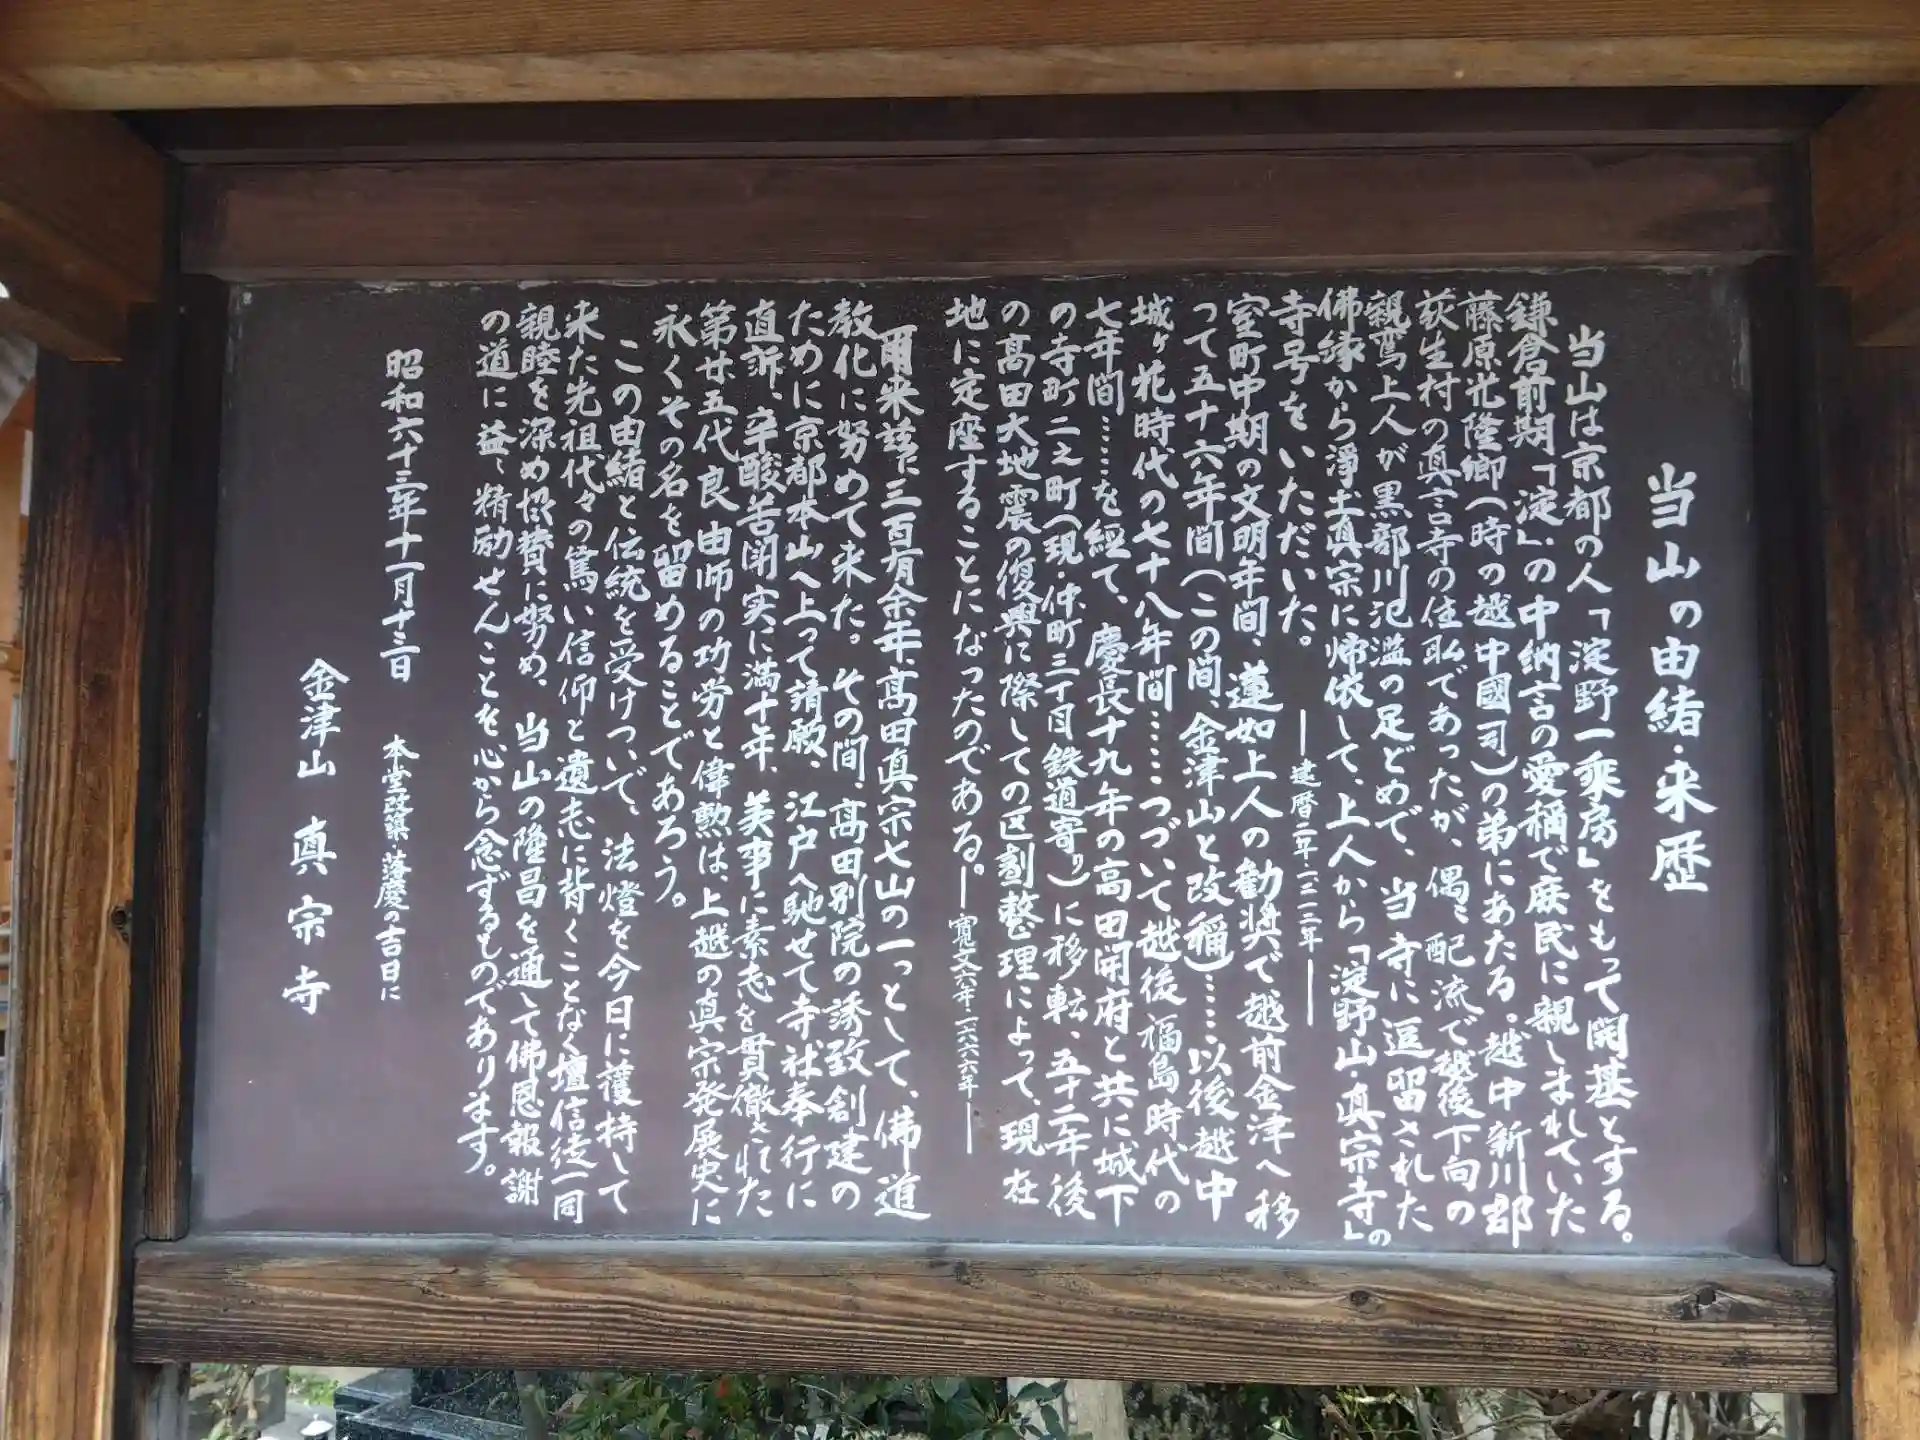 当山の由緒・来歴
当山は京都の人「淀野一乘房」をもって開基とする。
鎌倉前期「淀」の中納言の愛稱で庶民に親しまれていた
藤原光隆卿(時の越中國司)の弟にあたる。越中新川郡
荻生村の真言寺の住職であったが、偶々配流で越後下向の
親鸞上人が黒部川氾濫の足どめで、当寺に逗留された
佛縁から淨土真宗に帰依して、上人から「淀野山・真宗寺」の
寺号をいただいた。 ―建暦二年・一二一二年―
室町中期の文明年間、蓮如上人の勧奨で越前金津へ移
って五十六年間(この間、金津山と改稱)……以後越中
城ヶ花時代の七十八年間……つづいて越後福島時代の
七年間……を経て、慶長十九年の高田開府と共に城下
の寺町二之町(現・仲町三丁目鉄道寄り)に移転、五十二年後
の高田大地震の復興に際しての区劃整理によって、現在
地に定座することになったのである。―寛文六年・一六六六年―
爾来茲に三百有余年、高田真宗七山の一つとして、佛道
教化に努めて来た。その間、高田別院の誘致創建の
ために京都本山へ上って請願、江戸へ馳せて寺社奉行に
直訴、辛酸苦闘実に満十年、美事に素志を貫徹された
第廿五代良由師の功労と偉勲は、上越の真宗発展史に
永くその名を留めることであろう。
この由緒と伝統を受けついで、法燈を今日に護持して
来た先祖代々の篤い信仰と遺志に背くことなく壇信徒一同
親睦を深め協賛に努め、当山の隆昌を通して佛恩報謝
の道に益々精励せんことを心から念ずるものであります。
昭和六十三年十一月十三日 本堂改築・落慶の吉日に
金津山 真宗寺